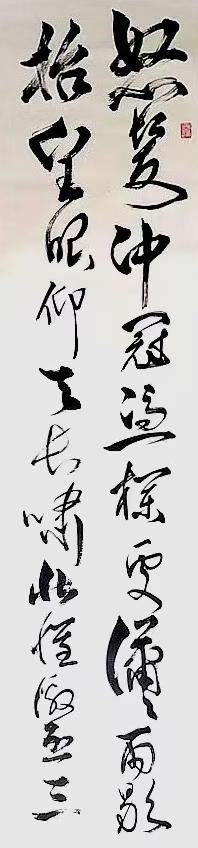 怒髮沖冠憑欄處瀟瀟雨歇
抬望眼仰天長嘯壯懷激烈三